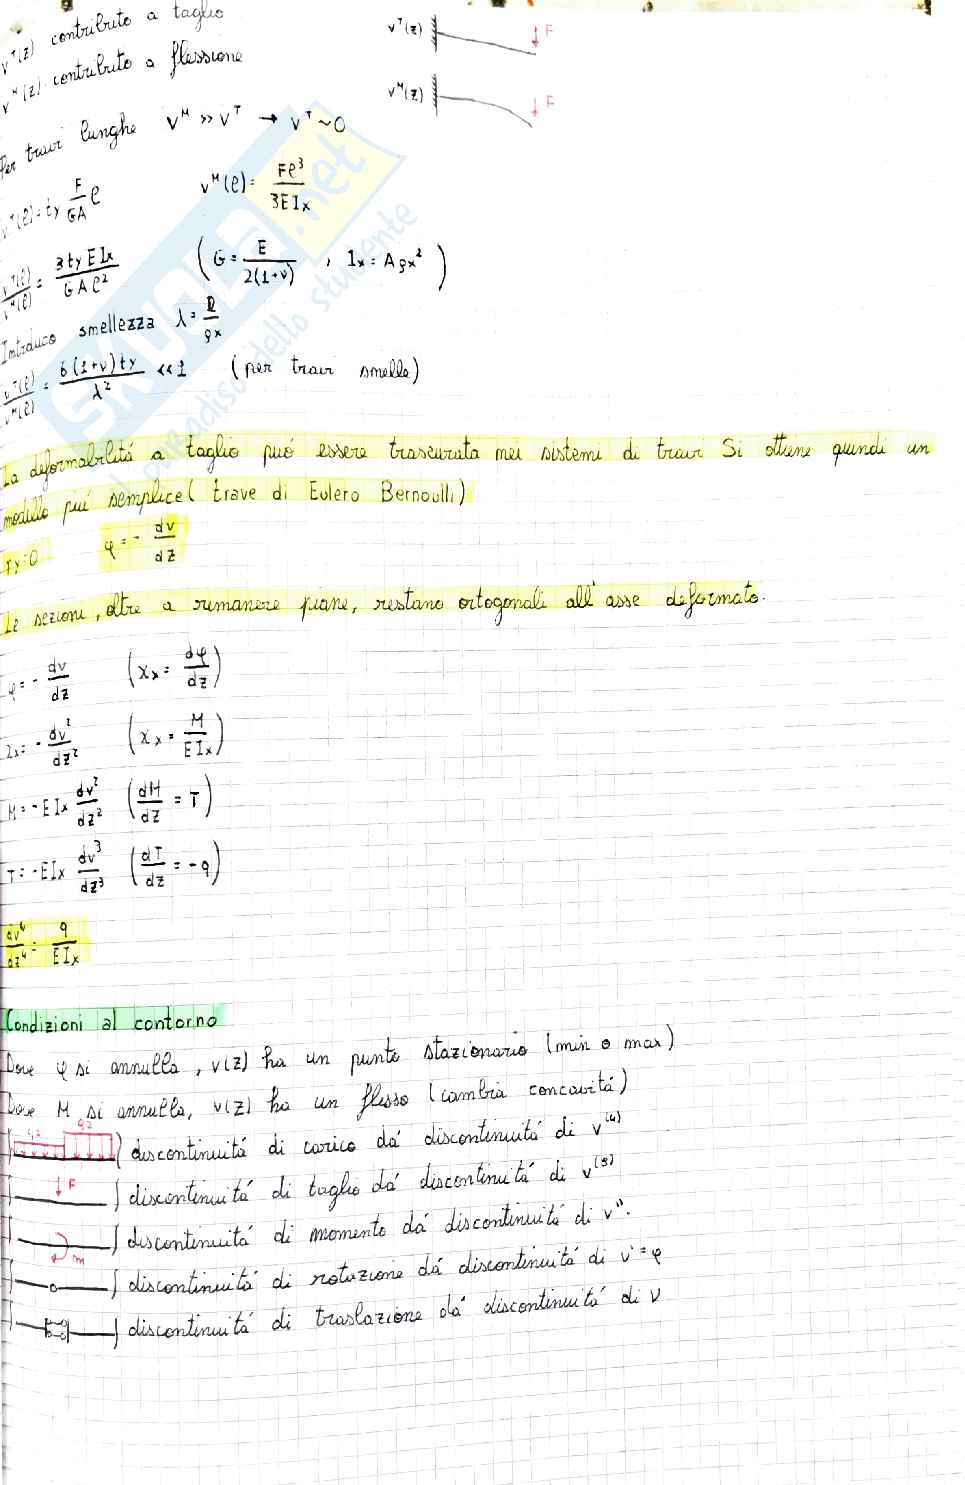 vᵀ(z) contributo a taglio
vᴹ(z) contributo a flessione
vᵀ(z) F
vᴹ(z) F
Per travi lunghe vᴹ >> vᵀ → vᵀ ~ 0
vᵀ(ℓ) = ty F/GA ℓ vᴹ(ℓ) = Fℓ³/3EIx
vᵀ(ℓ)/vᴹ(ℓ) = 3tyEIx/GAℓ² (G = E/2(1+ν) , Ix = Aρx²)
Introduco snellezza λ = ℓ/ρx
vᵀ(ℓ)/vᴹ(ℓ) = 6(1+ν)ty/λ² << 1 (per travi snelle)
La deformabilitá a taglio puó essere trascurata nei sistemi di travi Si ottiene quindi un
modello piú semplice ( trave di Eulero Bernoulli)
γy=0 φ = - dv/dz
Le sezioni, oltre a rimanere piane, restano ortogonali all'asse deformato.
φ = - dv/dz (χx = dφ/dz)
χx = - dv²/dz² (χx = M/EIx)
M = - EIx dv²/dz² (dM/dz = T)
T = - EIx dv³/dz³ (dT/dz = -q)
dv⁴/dz⁴ = q/EIx
Condizioni al contorno
Dove φ si annulla, v(z) ha un punto stazionario (min o max)
Dove M si annulla, v(z) ha un flesso (cambia concavitá)
q1 q2 discontinuitá di carico dá discontinuitá di v⁽⁴⁾
F discontinuitá di taglio dá discontinuitá di v⁽³⁾
m discontinuitá di momento dá discontinuitá di v".
discontinuitá di rotazione dá discontinuitá di v' = φ
discontinuitá di traslazione dá discontinuitá di v
SKUOLA.net
il paradiso dello studente